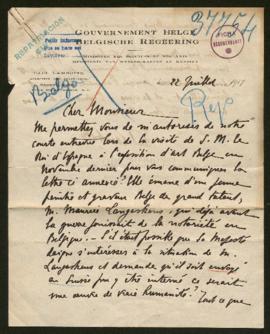 GOUVERNEMENT BELGE
BELGISCHE REGEERING
37754
22 Juillet
Rép
Cher Monsieur
Me permettez vous de m'autoriser de notre
courte entrevue lors de la visite de S. M. le
Roi d'Espagne à l'exposition d'art Belge en
Novembre dernier pour vous communiquer la
lettre ci annexée? Elle émane d'un jeune
peintre et graveur Belge de grand talent,
M. Maurice Langaskens, qui déjà avant
la guerre jouissait de la notoriété en
Belgique. S'il était possible que Sa Majesté
daigne s'intéresser à la situation de M.
Langaskens et demande qu'il soit envoyé
en Suisse pour y être interné ce serait
une œuvre de vraie humanité! Tout ce que